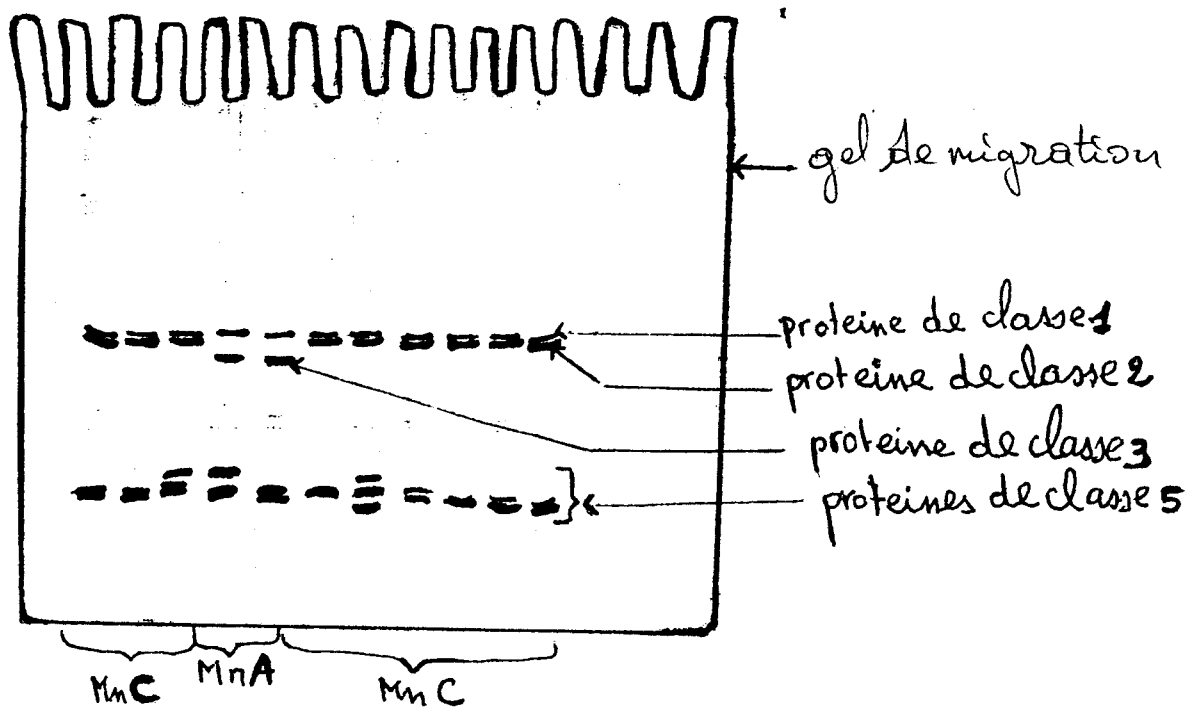 gel de migration
proteine de classe 1
proteine de classe 2
proteine de classe 3
proteines de classe 5
MnC
MnA
MnC